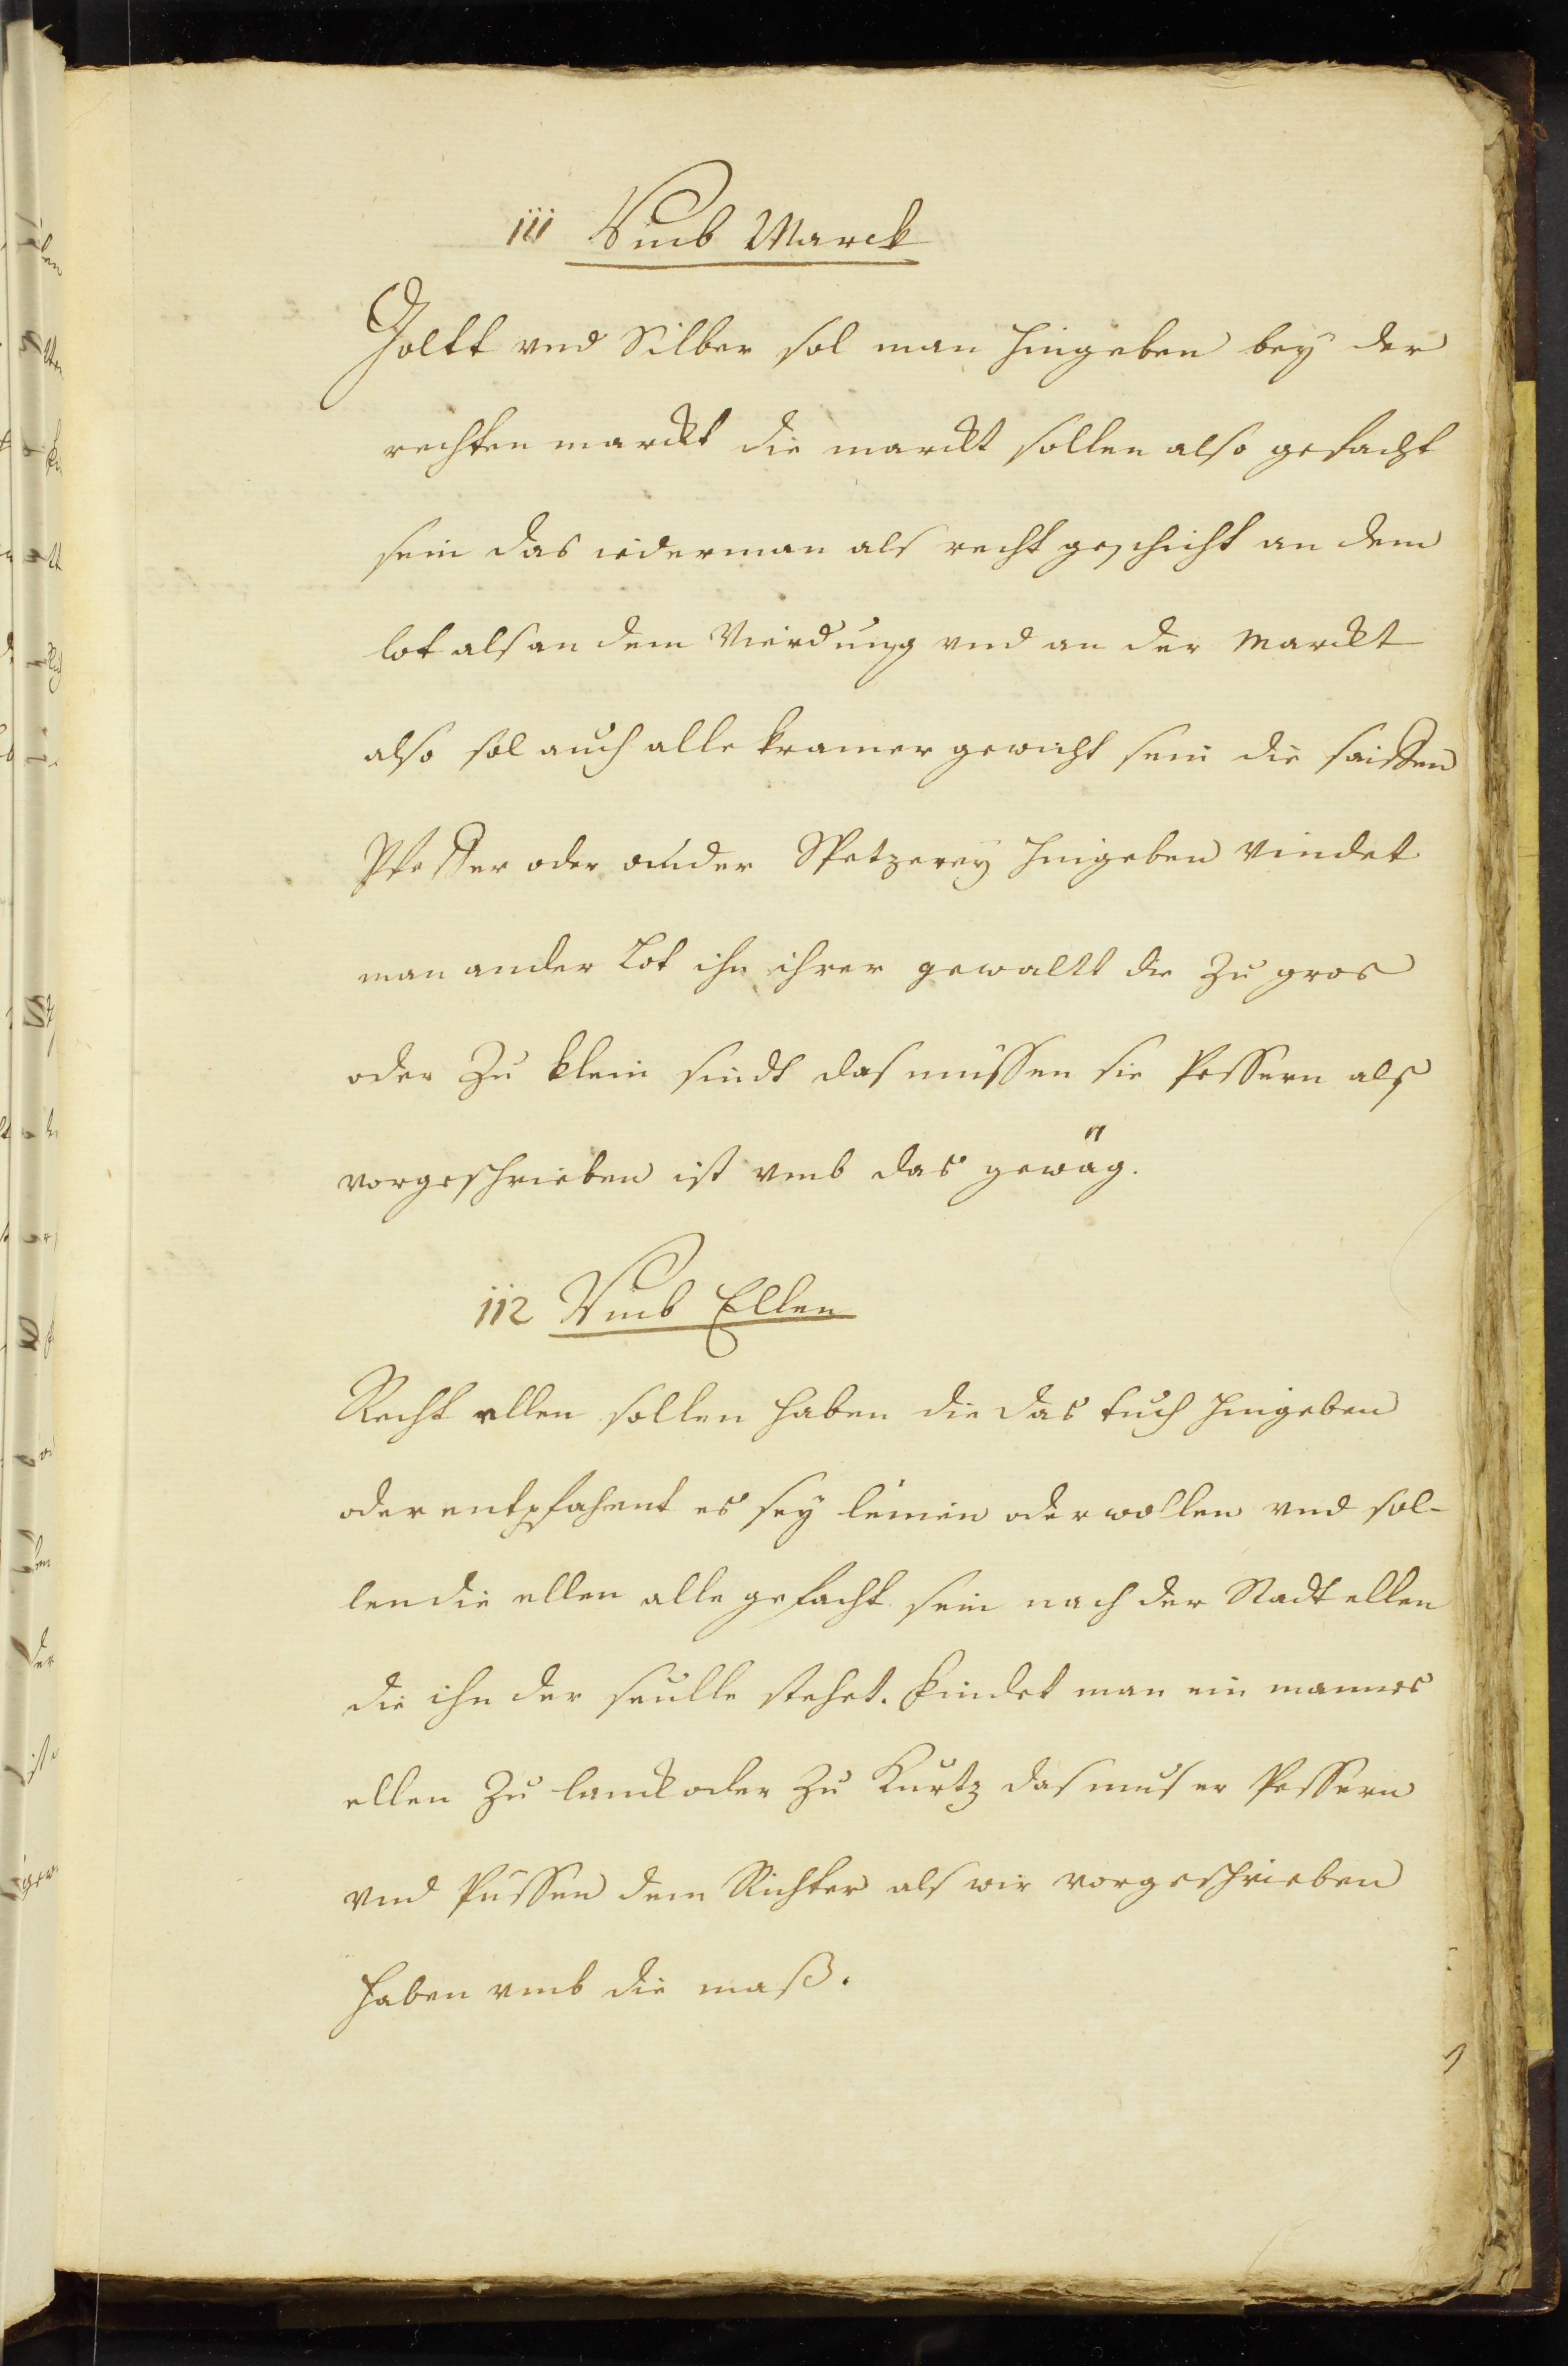 111 Vmb Marck
Goltt vnd Silber sol man hingeben bey der
rechten marckt die marckt sollen also gefacht
sein das iederman als recht geschicht an dem
lot als an dem Vierdung vnd an der Marckt
also sol auch alle kramer gewicht sein die
Pfeffer oder ander Spetzerey hingeben vindet
man ander Lot ihn ihrer gewaltt die Zu gros
oder Zu klein sindt das müssen sie Pessern als
vorgeschrieben ist vmb das gewäg.
112 Vmb Ellen
Recht ellen sollen haben die das tuch hingeben
oder entpfahent es sey leinen oder wollen vnd sol-
len die ellen alle gefacht sein nach der Stadt ellen
die ihn der seulle stehet. findet man ein mannes
ellen Zu lanck oder Zu Kurtz das mus er Pessern
vnd Püssen dem Richter als wir vorgeschrieben
haben vmb die maß.